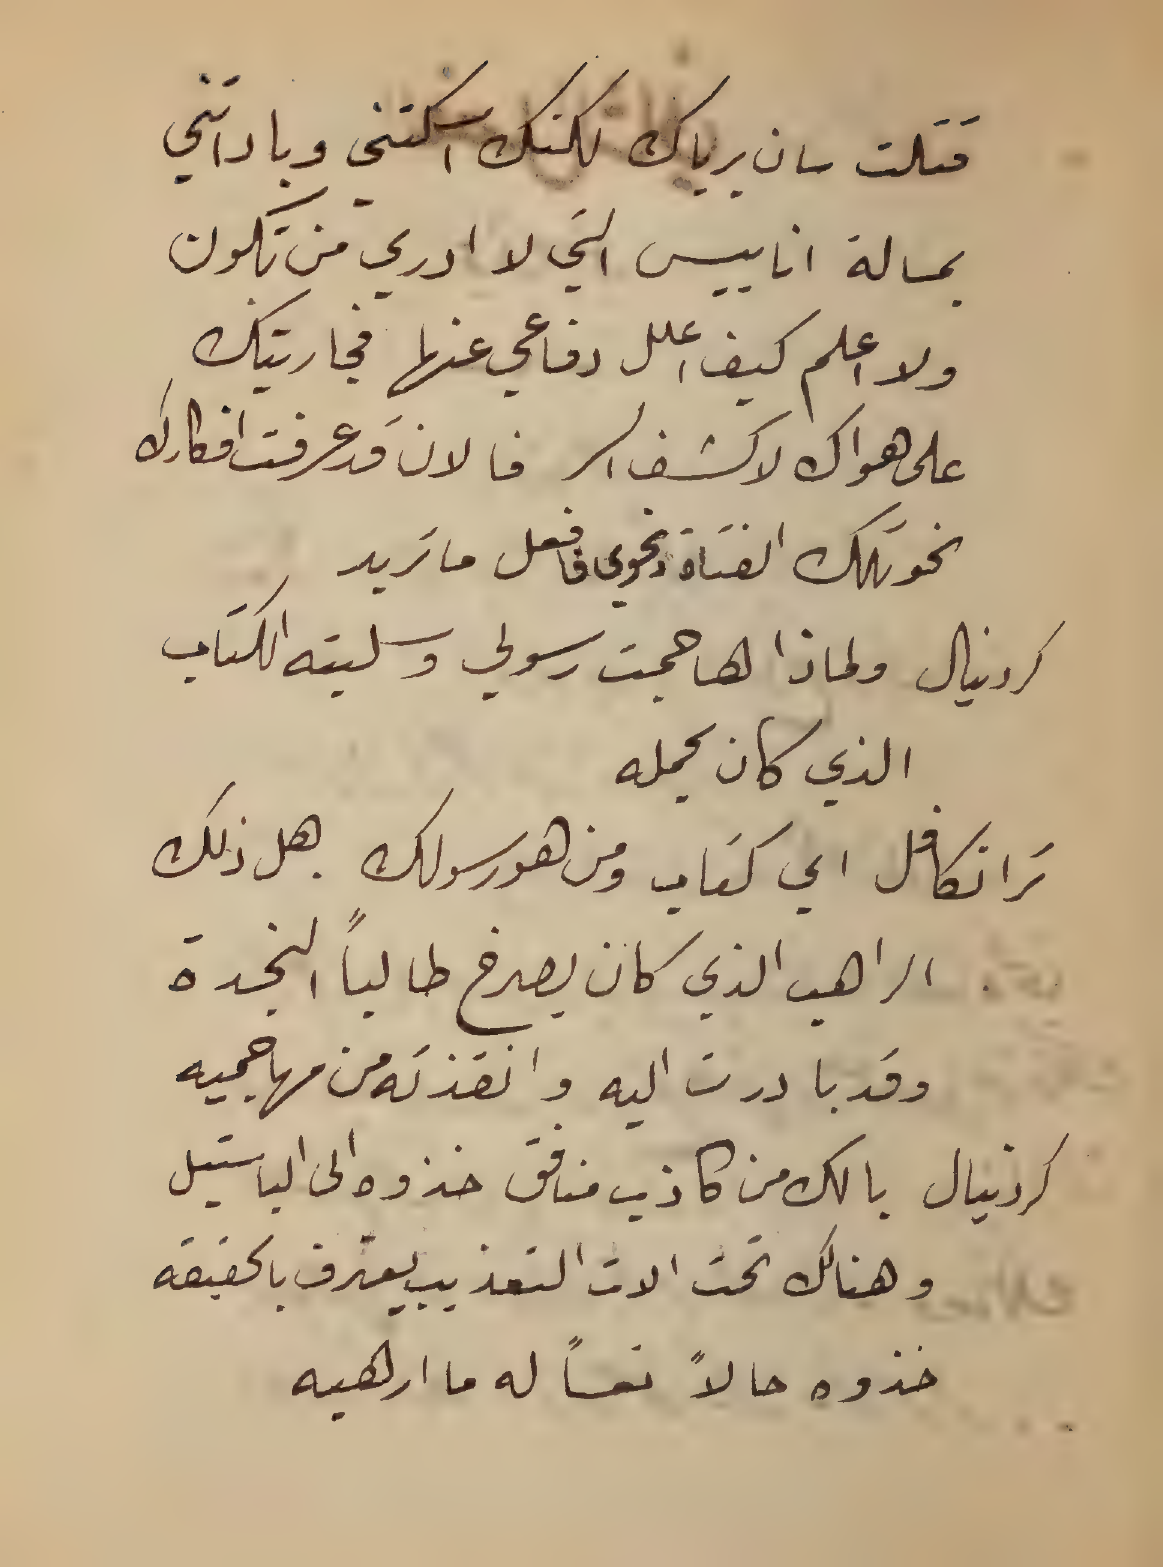 قتلت سان برياك لكنك اسكتني وباداتني
بمسالة انابيس التي لا ادري من تكون
ولا اعلم كيف اعلل دفاعي عنها فجاريتك
على هواك لاكشف السر فالان قد عرفت افكارك
نحو تلك الفتاة ونحوي فافعل ما تريد
كردنيال ولماذا هاجمت رسولي وسلبته الكتاب
الذي كان يحمله
ترانكافل اي كتاب ومن هو رسولك هل ذلك
الراهب الذي كان يصرخ طالباً النجدة
وقد بادرت اليه وانقذته من مهاجميه
كردنيال يا لك من كاذب منافق خذوه الى الباستيل
وهنالك تحت الات التعذيب يعترف بالحقيقه
خذوه حالاً تعساً له ما ارهبه